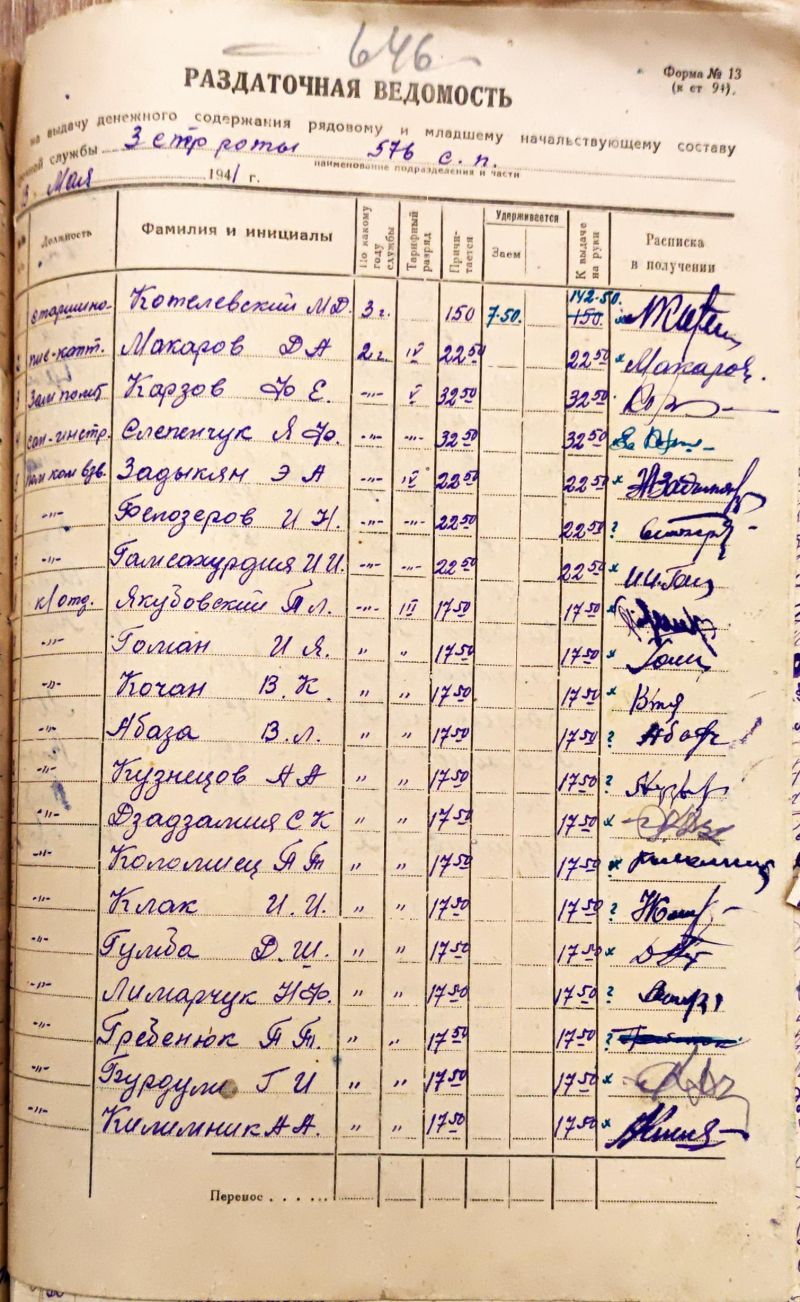 646
РАЗДАТОЧНАЯ ВЕДОМОСТЬ
Форма № 13
(к ст 94).
на выдачу денежного содержания рядовому и младшему начальствующему составу
срочной службы 3 стр роты 576 с. п.
наименование подразделения и части
Мая 1941 г.
Должность Фамилия и инициалы По какому году службы Тарифный разряд Причитается Удерживается Заем К выдаче на руки Расписка в получении
старшина Котелевский М.Д. 3 г. 150 7-50. 142-50. 150
2 пис-катт. Макаров Д А 2 г. IV 22 50 22 50 × Макаров
3 Зам полит Карзов Ф Е. -"- V 32 50 32 50
4 сан-инстр. Слепенчук Я Ф. -"- -"- 32 50 32 50
5 пом ком взв. Задыкян Э А -"- IV 22 50 22 50 ×
6 -"- Белозеров И Н. -"- -"- 22 50 22 50 ?
7 -"- Гамсахурдия И И. -"- -"- 22 50 22 50 × И.И.Гам
к/отд. Якубовский П Л. -"- III 17 50 17 50 ×
-"- Гоман И Я. " " 17 50 17 50 ×
-"- Кочан В. К. " " 17 50 17 50 ×
-"- Абаза В. Л. " " 17 50 17 50 ?
-"- Кузнецов А А " " 17 50 17 50 ?
-"- Дзадзамия С К " " 17 50 17 50 ×
-"- Коломиец П Т " " 17 50 17 50 × Коломиец
-"- Клак И. И. " " 17 50 17 50 ?
-"- Гумба Д. Ш. " " 17 50 17 50 ×
-"- Лимарчук Н Ф. " " 17 50 17 50 ?
-"- Гребенюк П Т. " " 17 50 17 50 ?
-"- Бурдули Г И " " 17 50 17 50 ×
-"- Килимник А А. " " 17 50 17 50 ×
Перенос . . . . . .